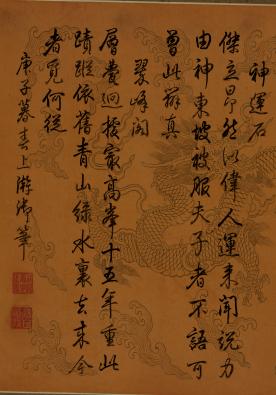 神運石
傑立昂然似偉人運來聞說力
由神東坡被服夫子者不語可
曾此辨真
翠峰閣
層疊迴接最高峯十五年重此
蹟蹤依舊青山綠水裏去來今
者覓何從
庚子暮春上澣御筆